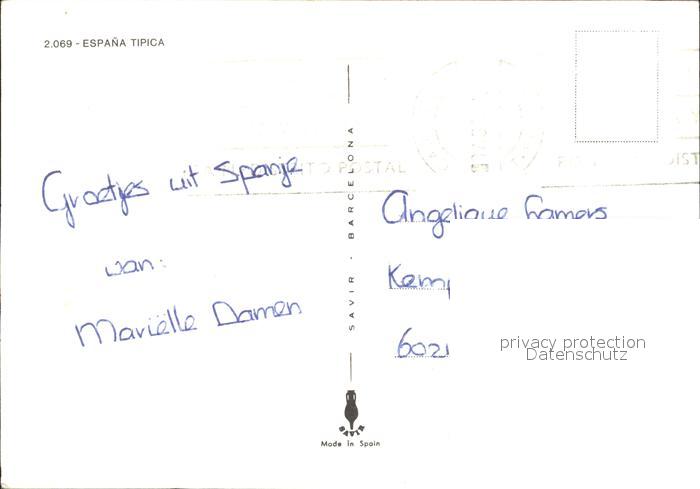 2.069 - ESPAÑA TIPICA
Groetjes uit Spanje
van:
Mariëlle Damen
SAVIR - BARCELONA
POSTAL
Angelique
Kem
6021
privacy protection
Datenschutz
SAVIR
Made in Spain